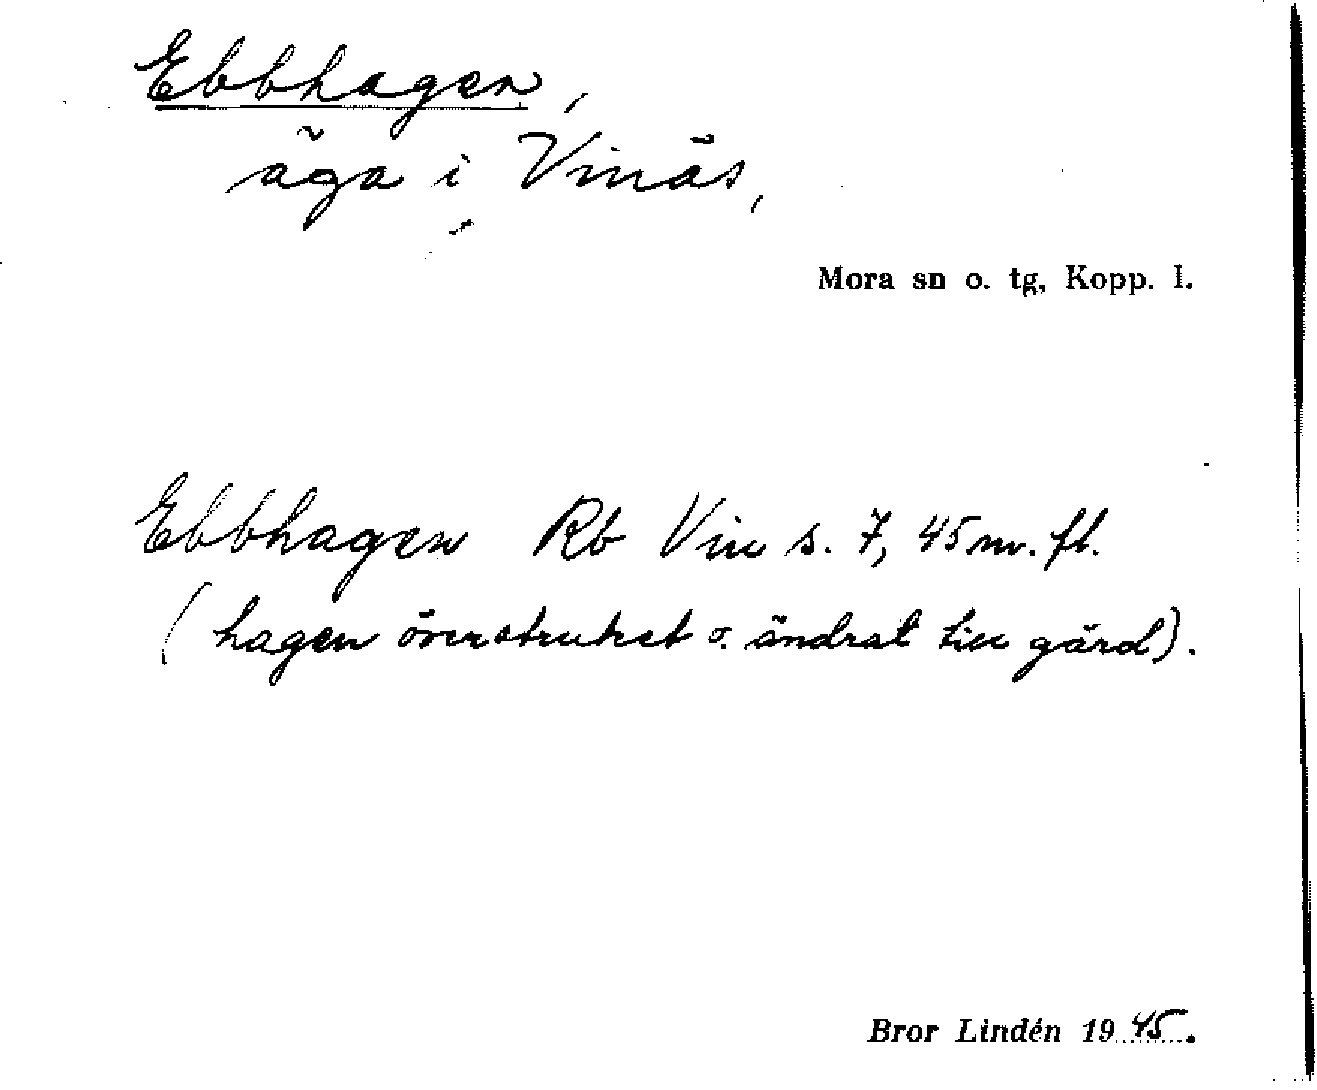 Ebbhagen,
äga i Vinäs,
Mora sn o. tg, Kopp. l.
Ebbhagen Rb Vin s. 7, 45 m. fl.
(hagen överstruket o. ändrat till gärd).
Bror Lindén 1945.